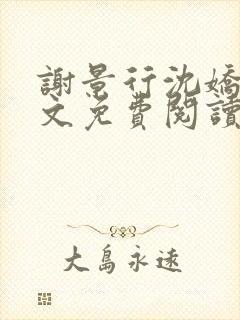 謝景行沈嬌
文免費閱讀
大島永遠